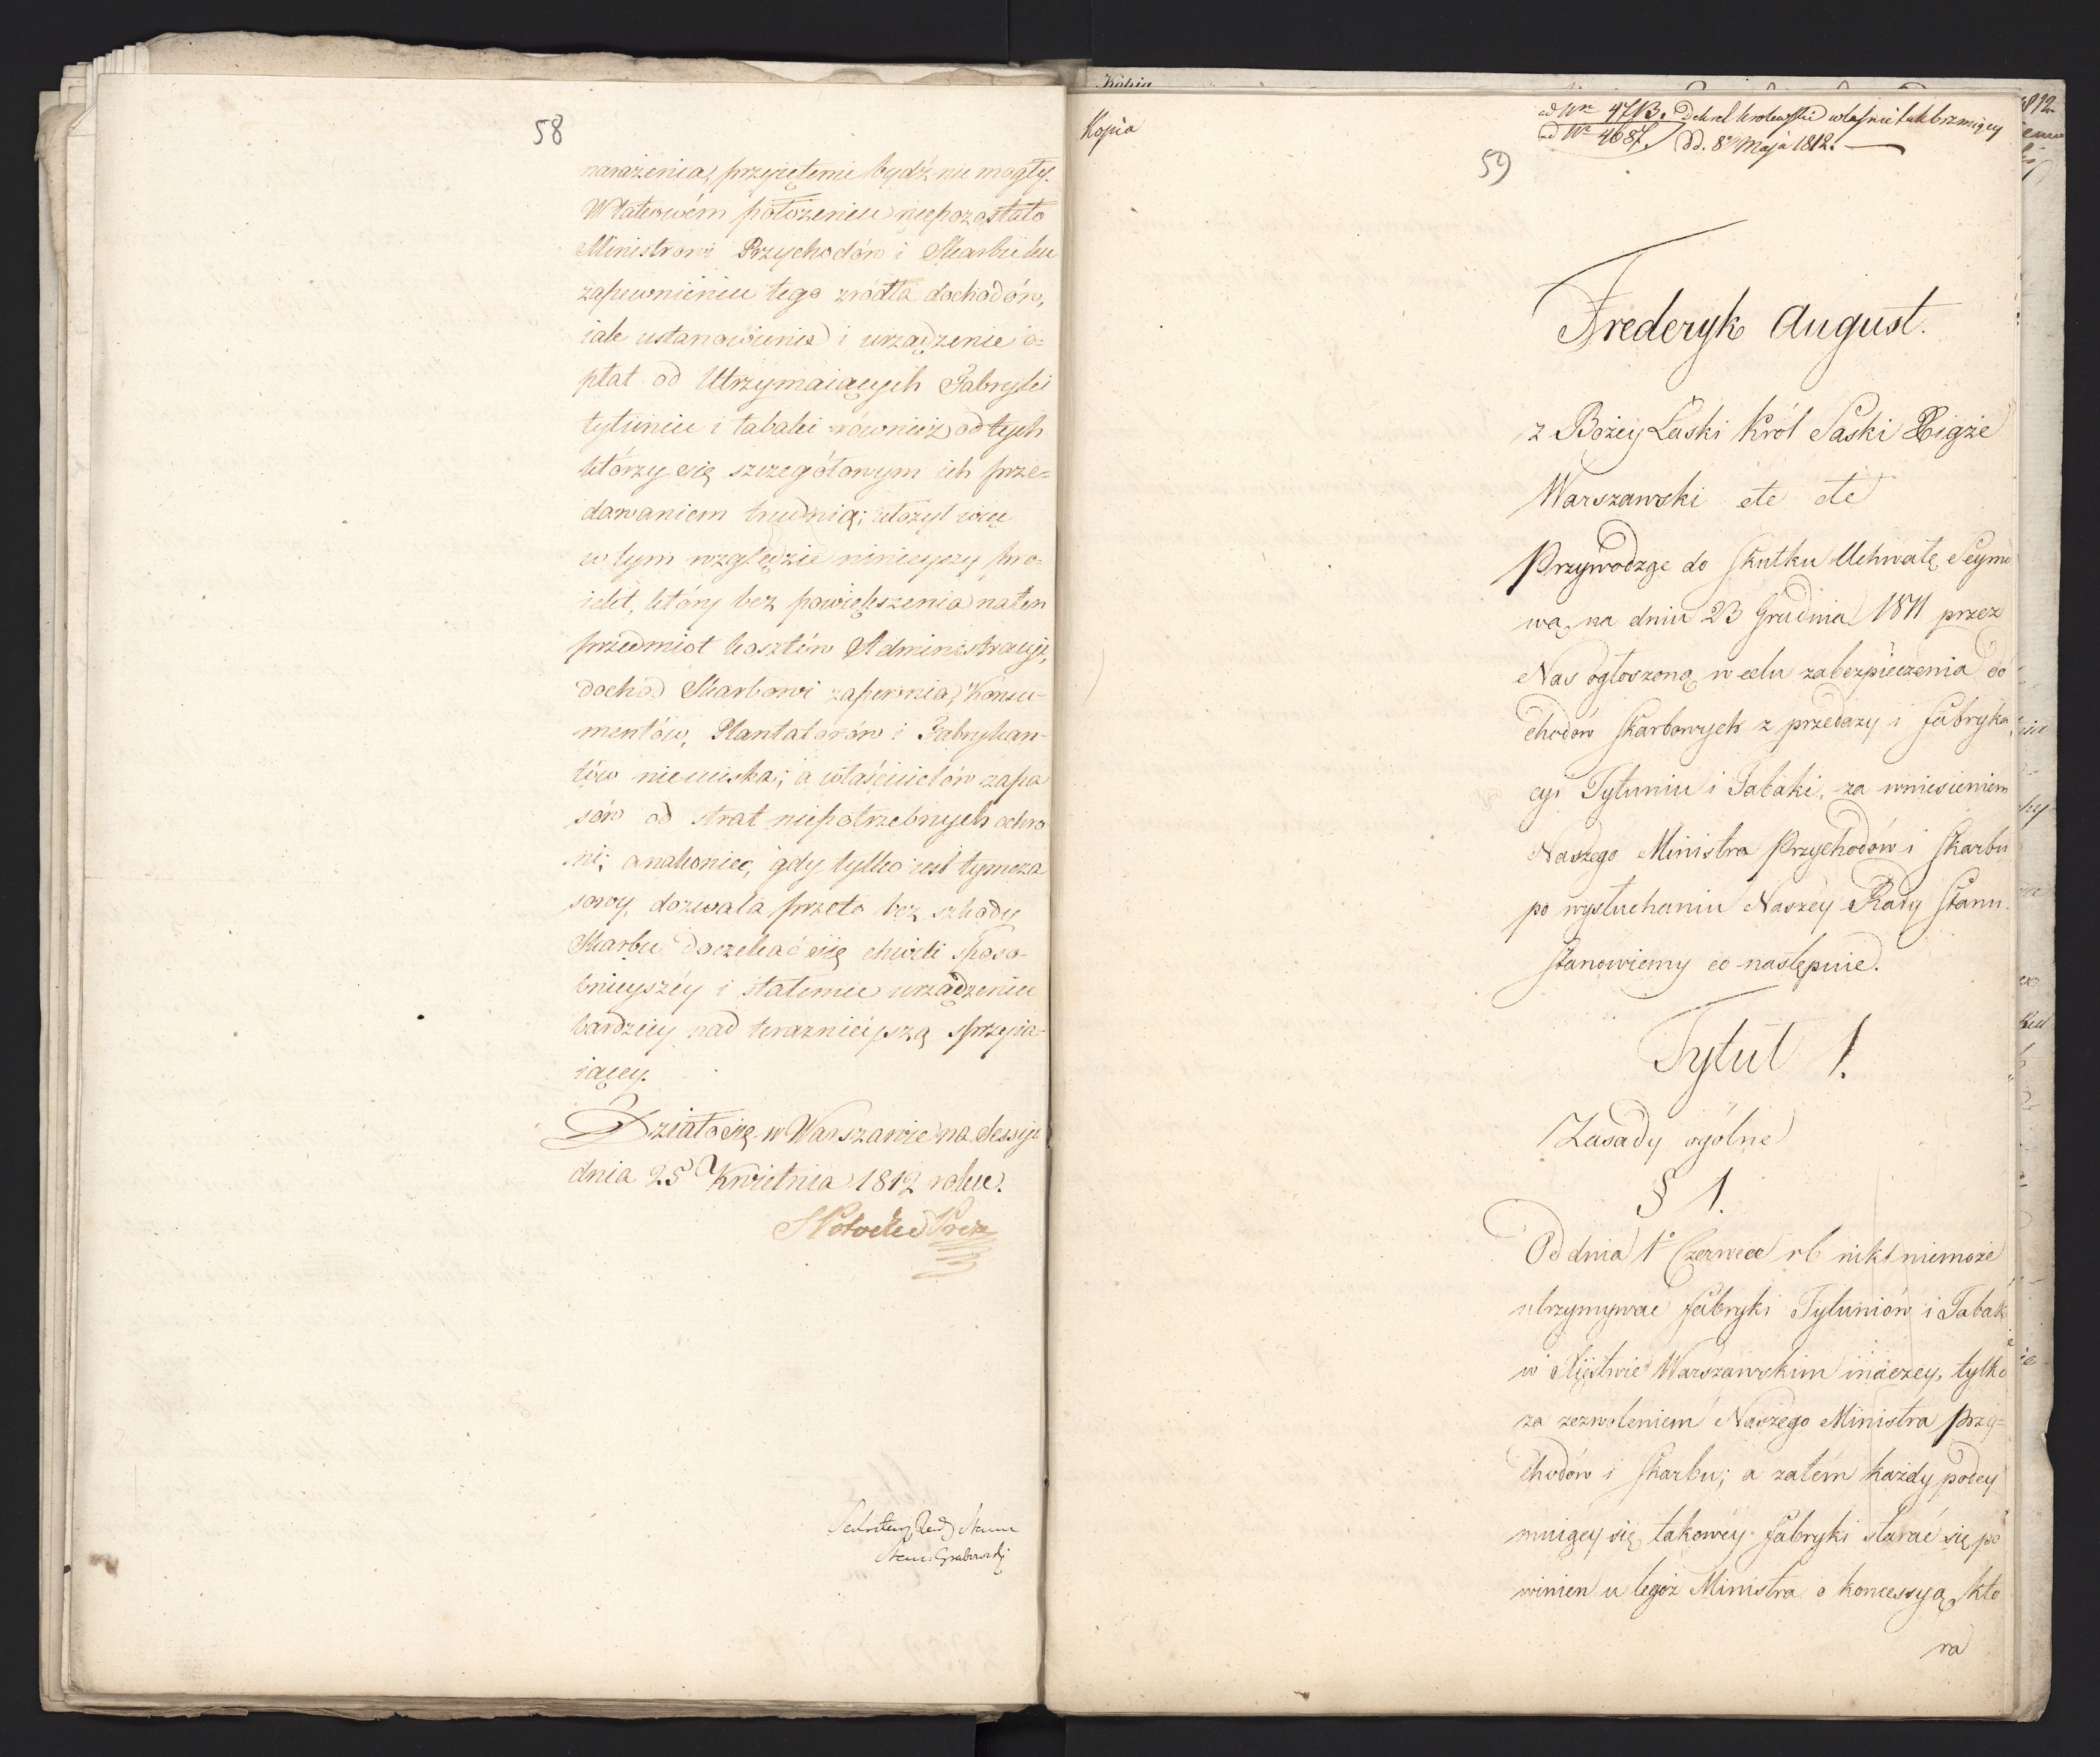 58
narażenia, przyiętemi bydź nie mogły.
W takowém położeniu niepozostało
Ministrowi Przychodów i Skarbu ku
zapewnieniu tego zródła dochodów,
iak ustanowienie i urządzenie o=
płat od Utrzymaiących Fabryki
tytuniu i tabaki równie od tych
którzy się szczegółowym ich prze=
dawaniem trudnią; ułożył więc
w tym względzie ninieyszy pro=
iekt, który bez powiększenia na ten
przedmiot kosztów Administracyi,
dochod Skarbowi zapewnia, Konsu-
mentów, Plantatorów i Fabrykan-
tów nieuciska; a właścicielów zapa
sów od strat niepotrzebnych ochro
ni; a nakoniec, gdy tylko iest tymcza
sowy, dozwala przeto bez szkody
Skarbu doczekać się chwili sposo-
bnieyszéy i stałemu urządzeniu
bardziey nad teraznieyszą sprzyia-
iącey.
Działo się w Warszawie na Sessyi
dnia 25 Kwietnia 1812 roku.
S Potocki Prez
Sekretarz Rady Stanu
Stan: Grabowski
Kopia
Kopia
ad Nr 4713. Dekret krolewski własnie tak brzmiący
ad Nr 4687. dd. 8 Maja 1812.
59
Frederyk August.
z Bożey Łaski Król Saski Xiąże
Warszawski etc etc
Przywodząc do skutku Uchwałę Seymo
wą na dniu 23 Grudnia 1811 przez
Nas ogłoszoną w celu zabezpieczenia do
chodów skarbowych z przedaży i fabryka
cyi Tytuniu i Tabaki, za wniesieniem
Naszego Ministra Przychodów i Skarbu
po wysłuchaniu Naszey Rady Stanu.
stanowiemy co następuie.
Tytuł 1.
Zasady ogólne
§ 1.
Od dnia 1o Czerwca rb nikt niemoże
utrzymywac fabryki Tytuniów i Tabak
w Xięstwie Warszawskim inaczey, tylko
za zezwoleniem Naszego Ministra Przy=
chodów i Skarbu; a zatém każdy podey
muiący się takowéy fabryki starać się po
winien u tegoż Ministra o koncessyą, któ
ra